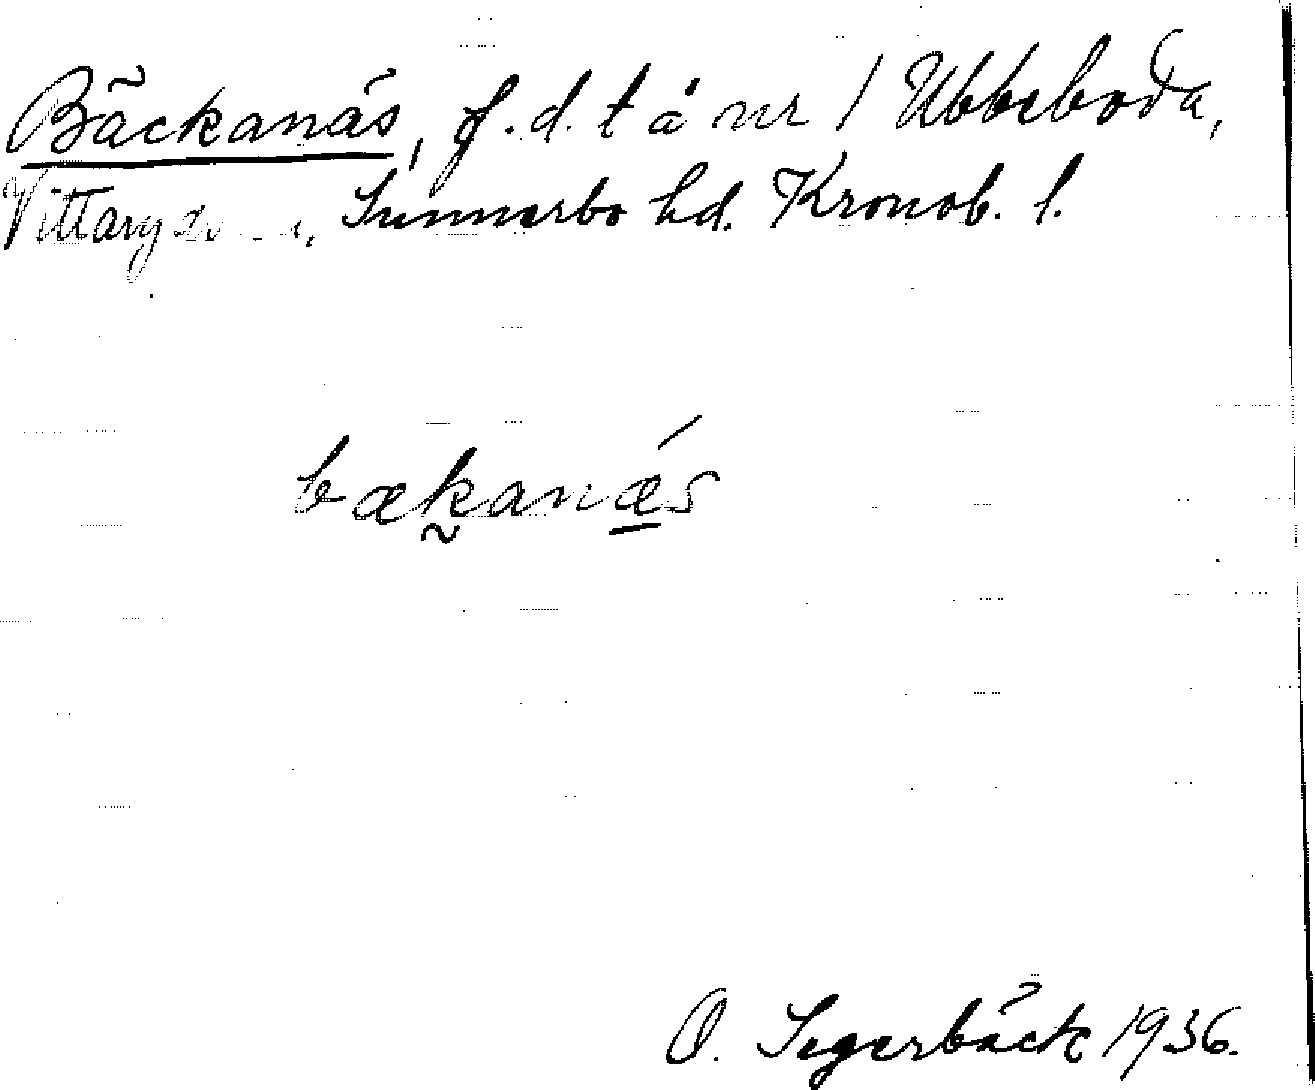 Bäckanäs, f.d. t å nr 1 Ubbeboda,
Vittaryd Sunnerbo hd. Kronob. l.
bækanǽs
O. Segerbäck 1936.